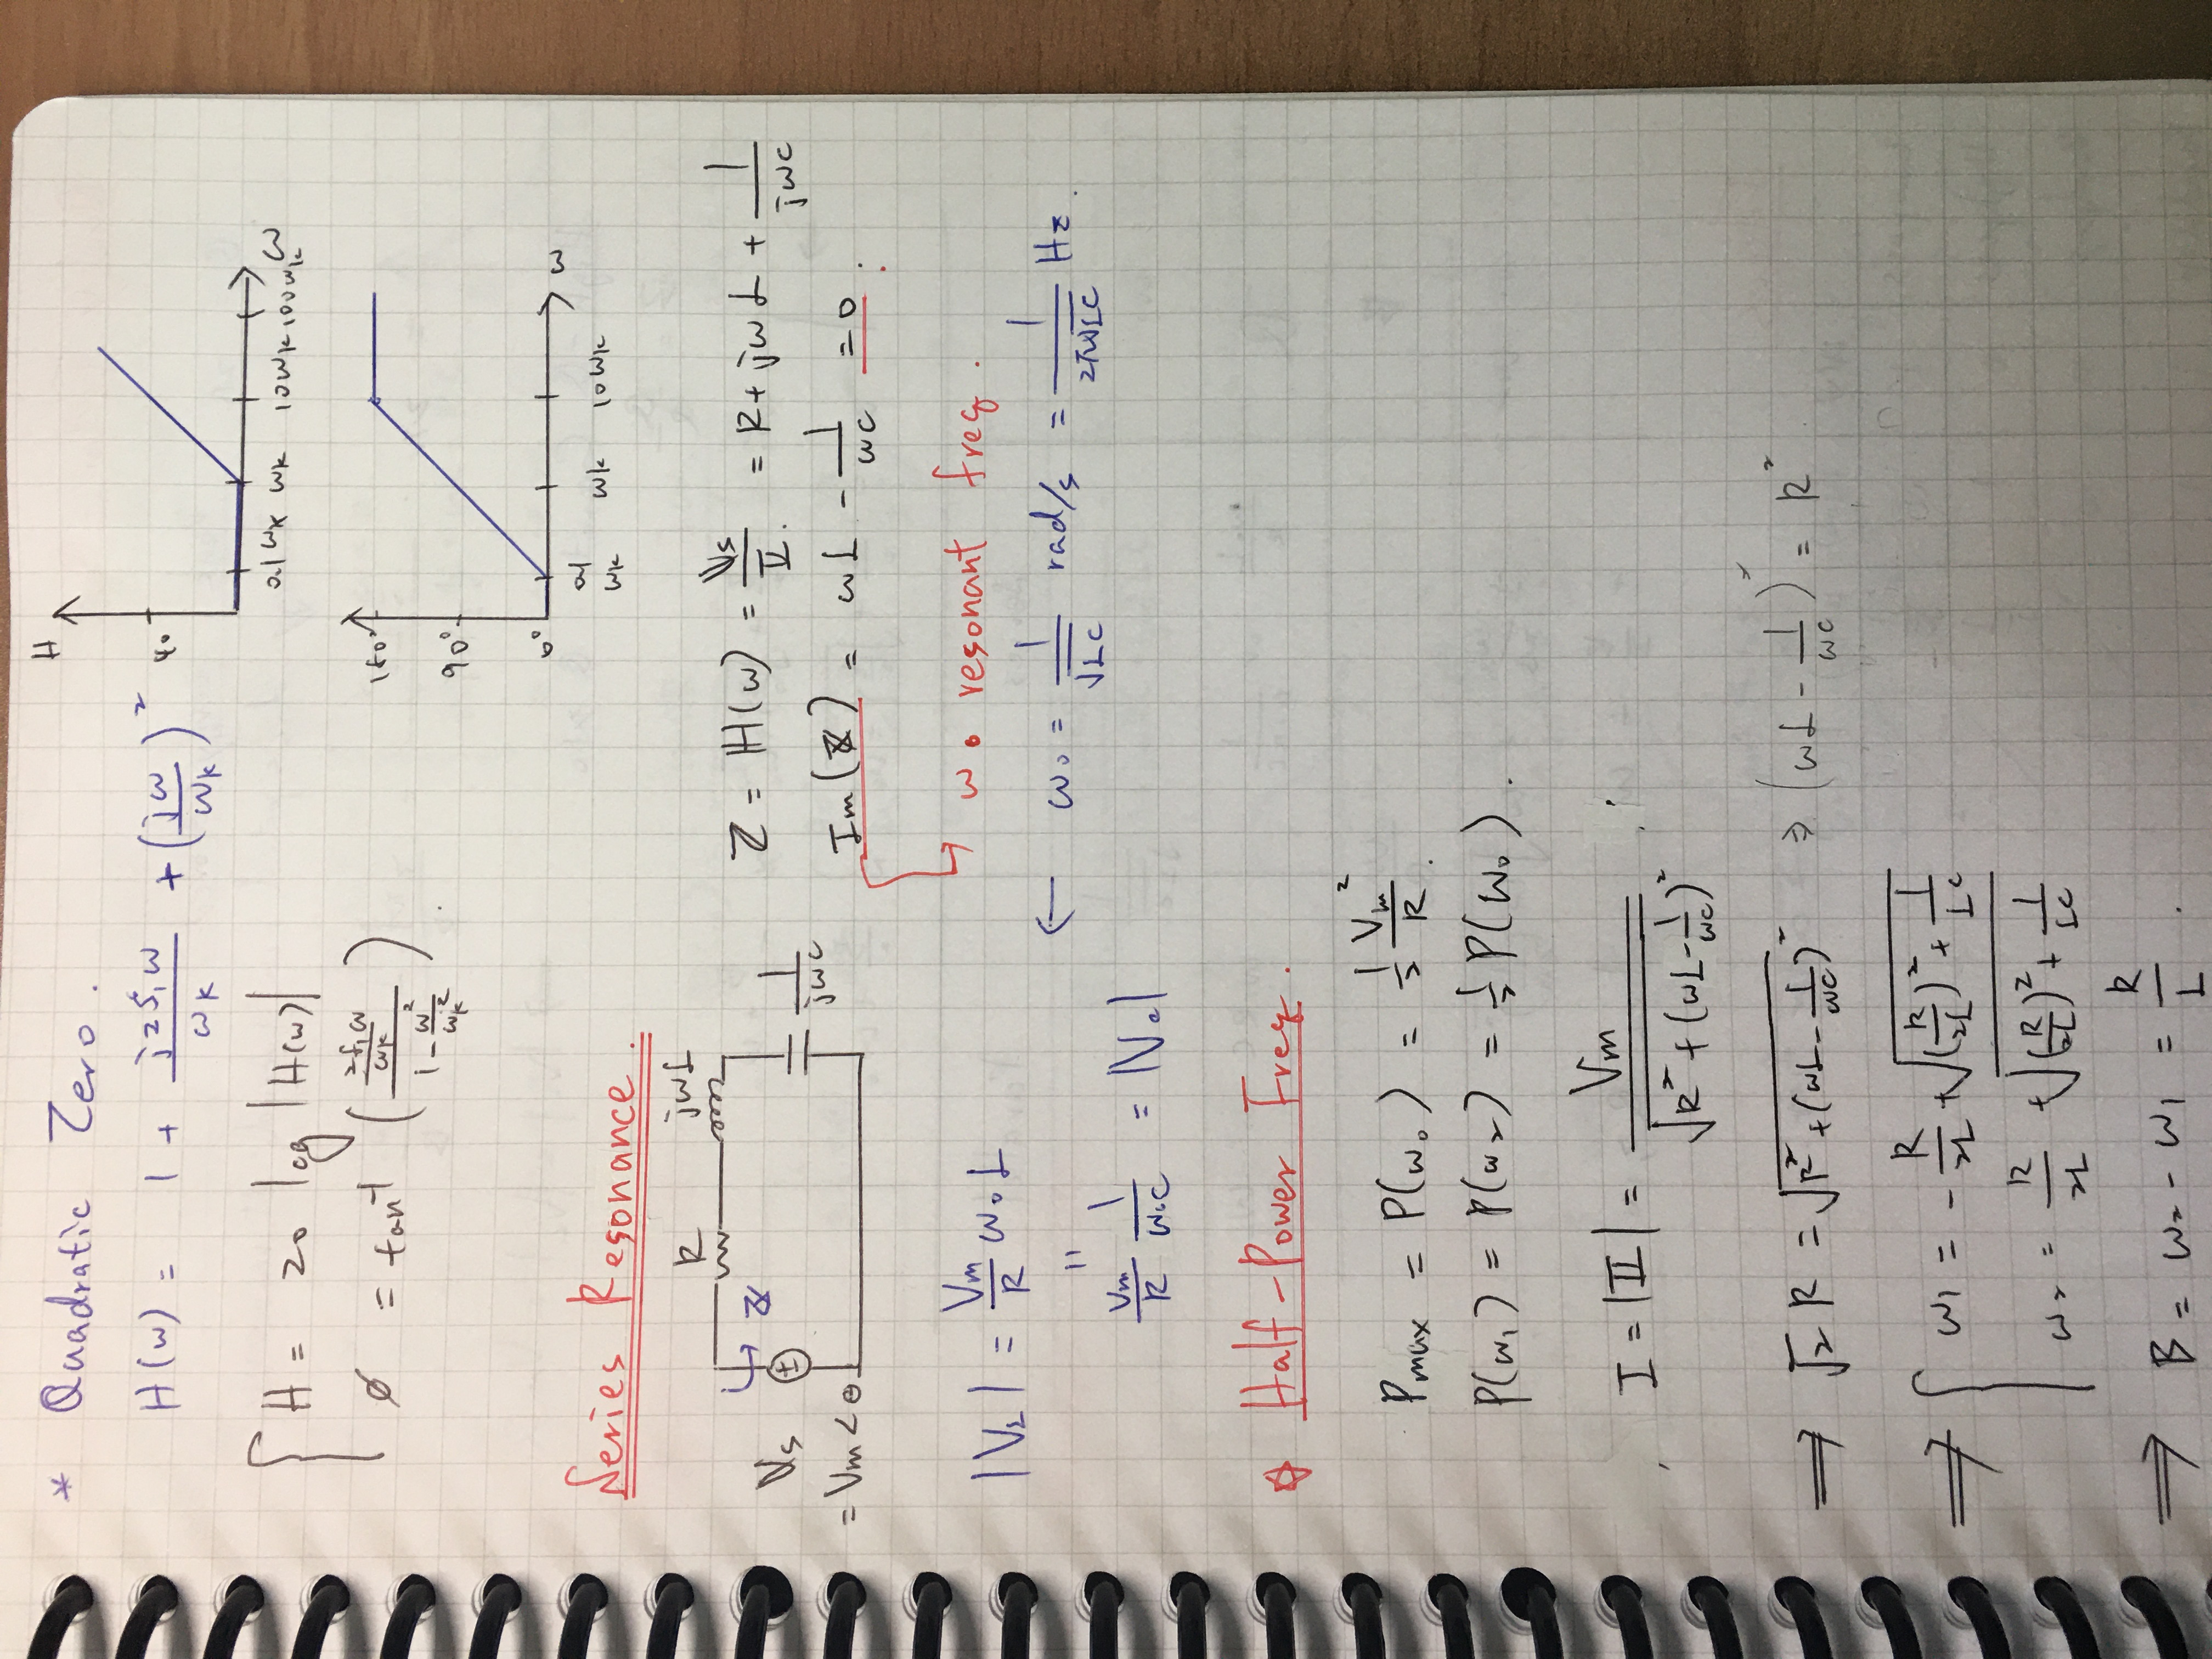 * Quadratic Zero.
H(ω) = 1 + j2ζ₁ω/ωk + (jω/ωk)²
H = 20 log |H(ω)|
ø = tan⁻¹ ( (2ζ₁ω/ωk) / (1 - ω²/ωk²) ).
H
40
0.1ωk ωk 10ωk 100ωk ω
180°
90°
0°
0.1ωk ωk 10ωk ω
Series Resonance.
R jωL
Z
Vs
= Vm<θ
±
1/jωC
Z = H(ω) = Vs/I. = R + jωL + 1/jωC
Im(Z) = ωL - 1/ωC = 0.
→ ω₀ resonant freq.
← ω₀ = 1/√LC rad/s = 1/2π√LC Hz.
|VL| = Vm/R ω₀L
"
Vm/R 1/ω₀C = |Vc|
☆ Half-Power Freq.
Pmax = P(ω₀) = 1/2 Vm²/R.
P(ω₁) = P(ω₂) = 1/2 P(ω₀).
I = |I| = Vm / √(R² + (ωL - 1/ωC)²)
⇒ √2 R = √(R² + (ωL - 1/ωC)²) ⇒ (ωL - 1/ωC)² = R²
⇒ ω₁ = - R/2L + √((R/2L)² + 1/LC)
ω₂ = R/2L + √((R/2L)² + 1/LC)
⇒ B = ω₂ - ω₁ = R/L.